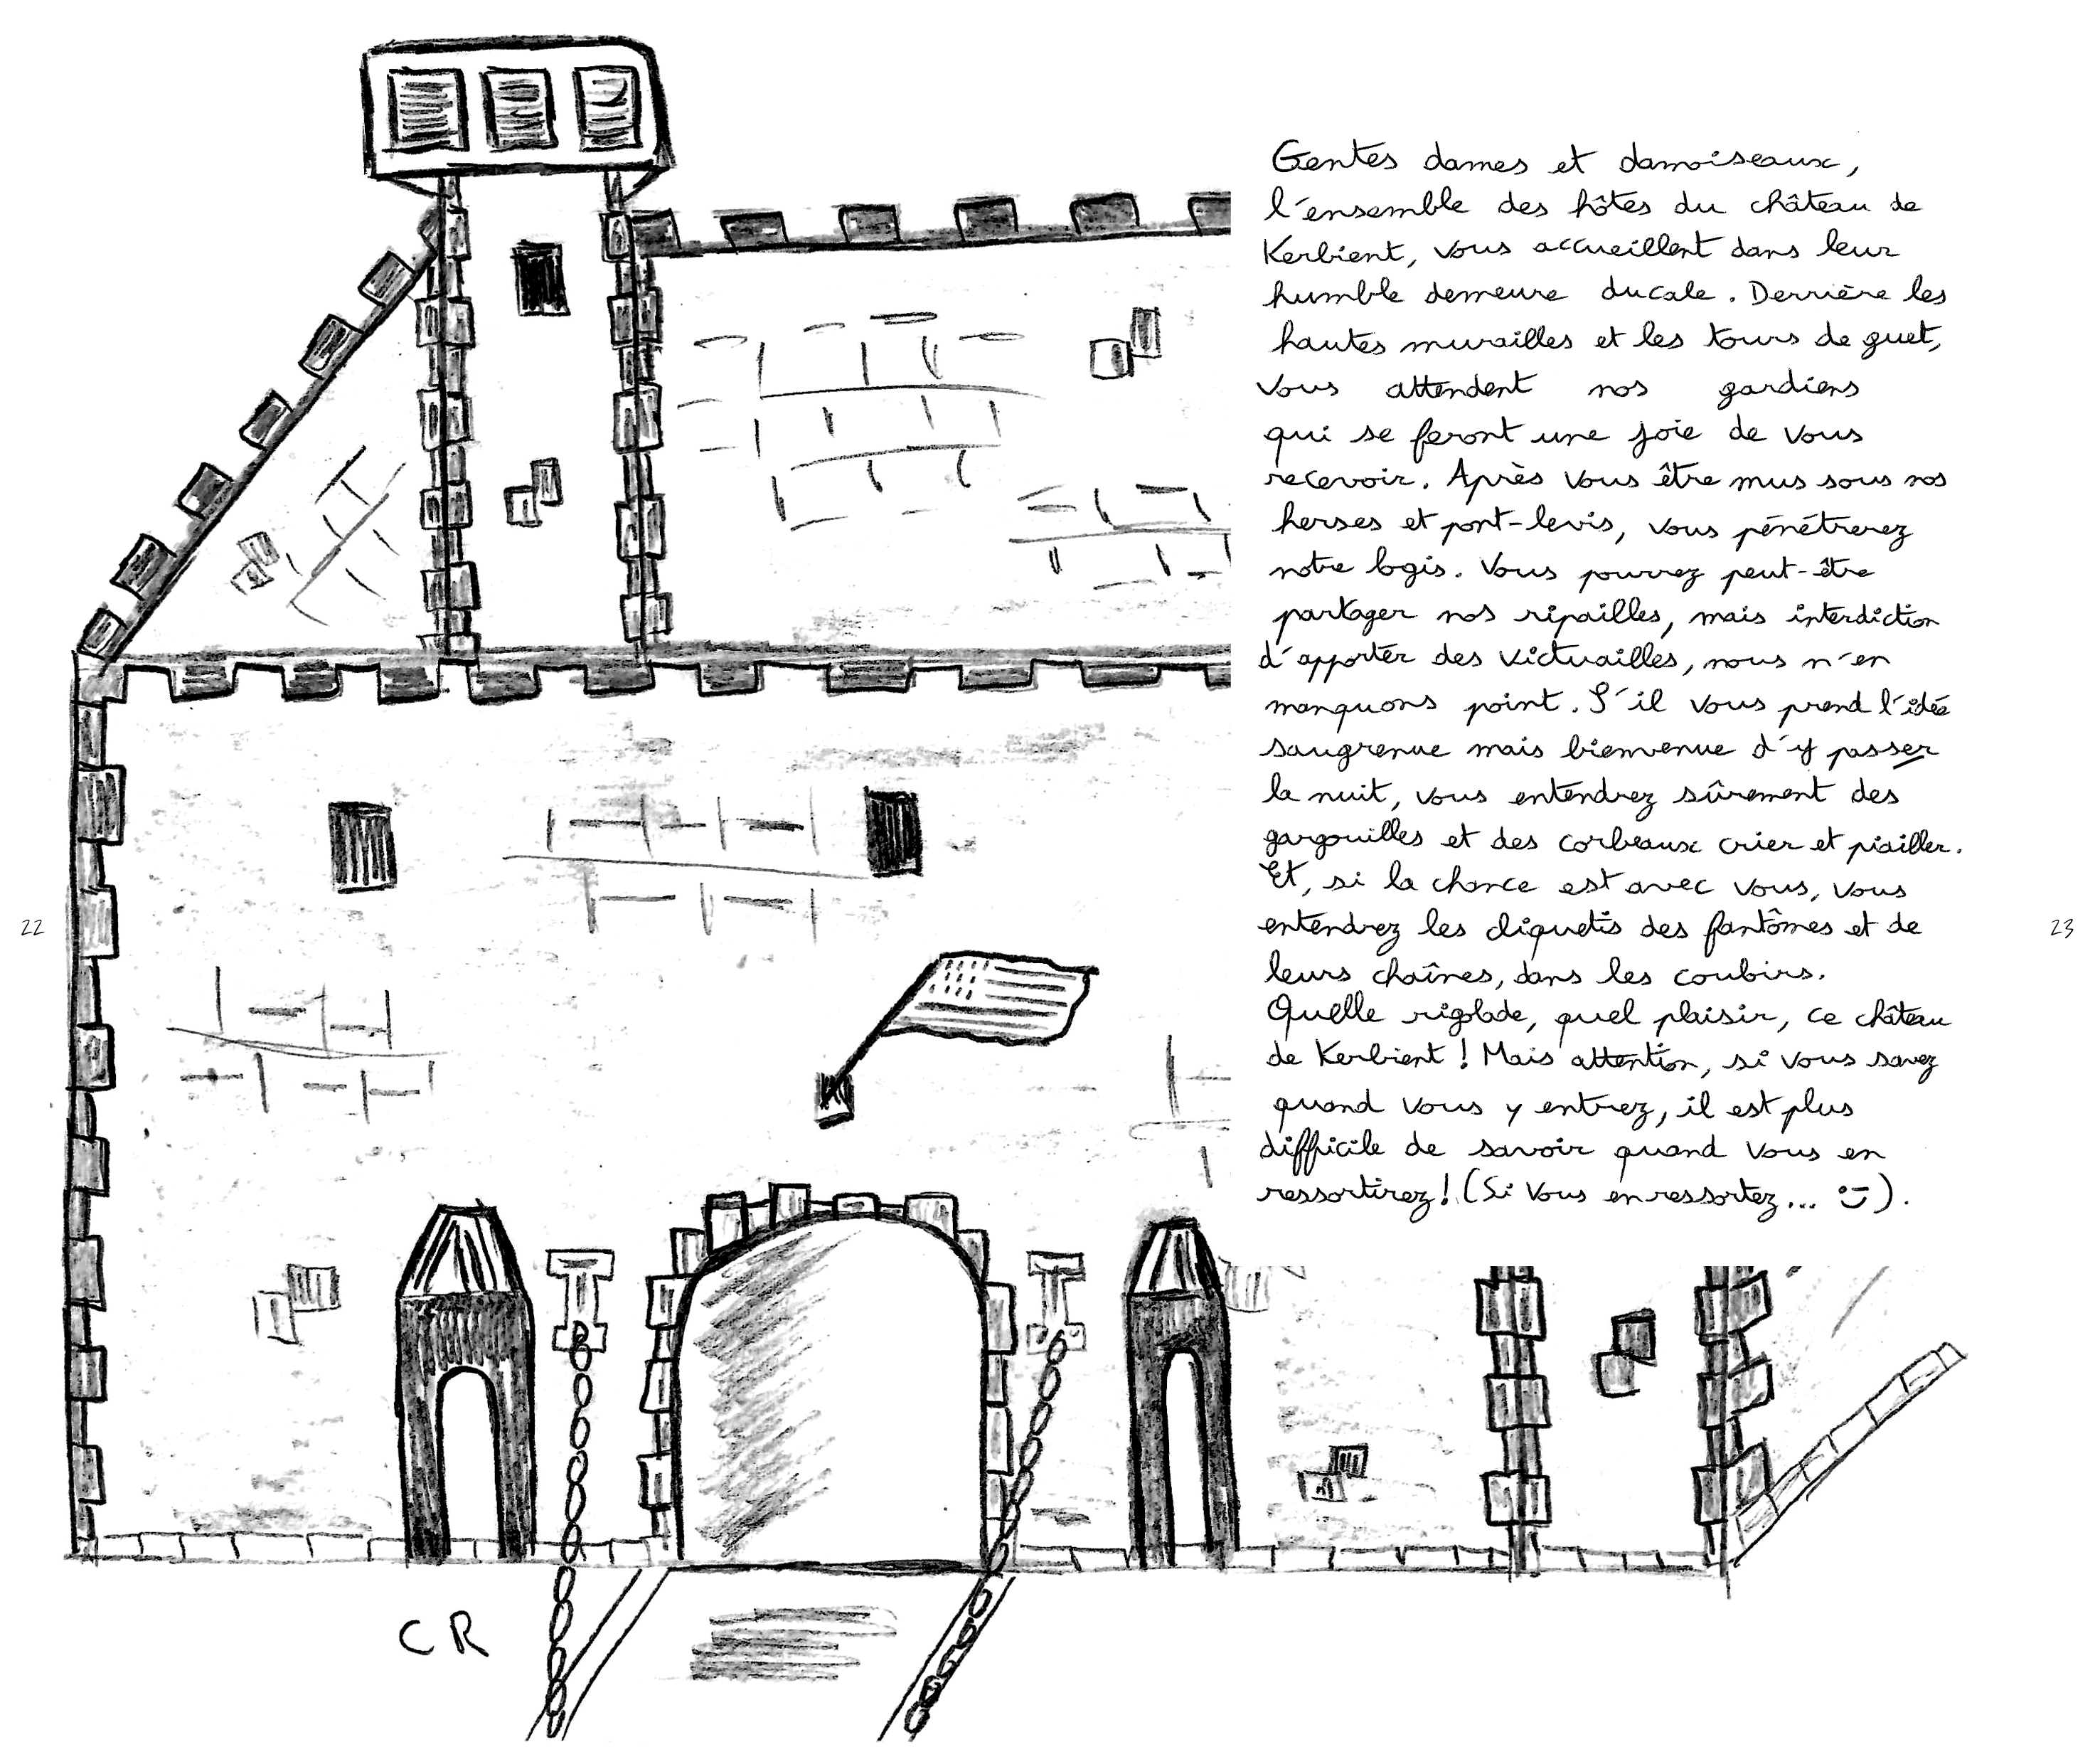 22
Gentes dames et damoiseaux,
l'ensemble des hôtes du château de
Kerbient, vous accueillent dans leur
humble demeure ducale. Derrière les
hautes murailles et les tours de guet,
vous attendent nos gardiens
qui se feront une joie de vous
recevoir. Après vous être mus sous nos
herses et pont-levis, vous pénétrerez
notre logis. Vous pourrez peut-être
partager nos ripailles, mais interdiction
d'apporter des victuailles, nous n'en
manquons point. S'il vous prend l'idée
saugrenue mais bienvenue d'y passer
la nuit, vous entendrez sûrement des
gargouilles et des corbeaux crier et piailler.
Et, si la chance est avec vous, vous
entendrez les cliquetis des fantômes et de
leurs chaînes, dans les coubirs.
Quelle rigolade, quel plaisir, ce château
de Kerbient ! Mais attention, si vous savez
quand vous y entrez, il est plus
difficile de savoir quand vous en
ressortirez ! (Si vous en ressortez... :)).
23
CR